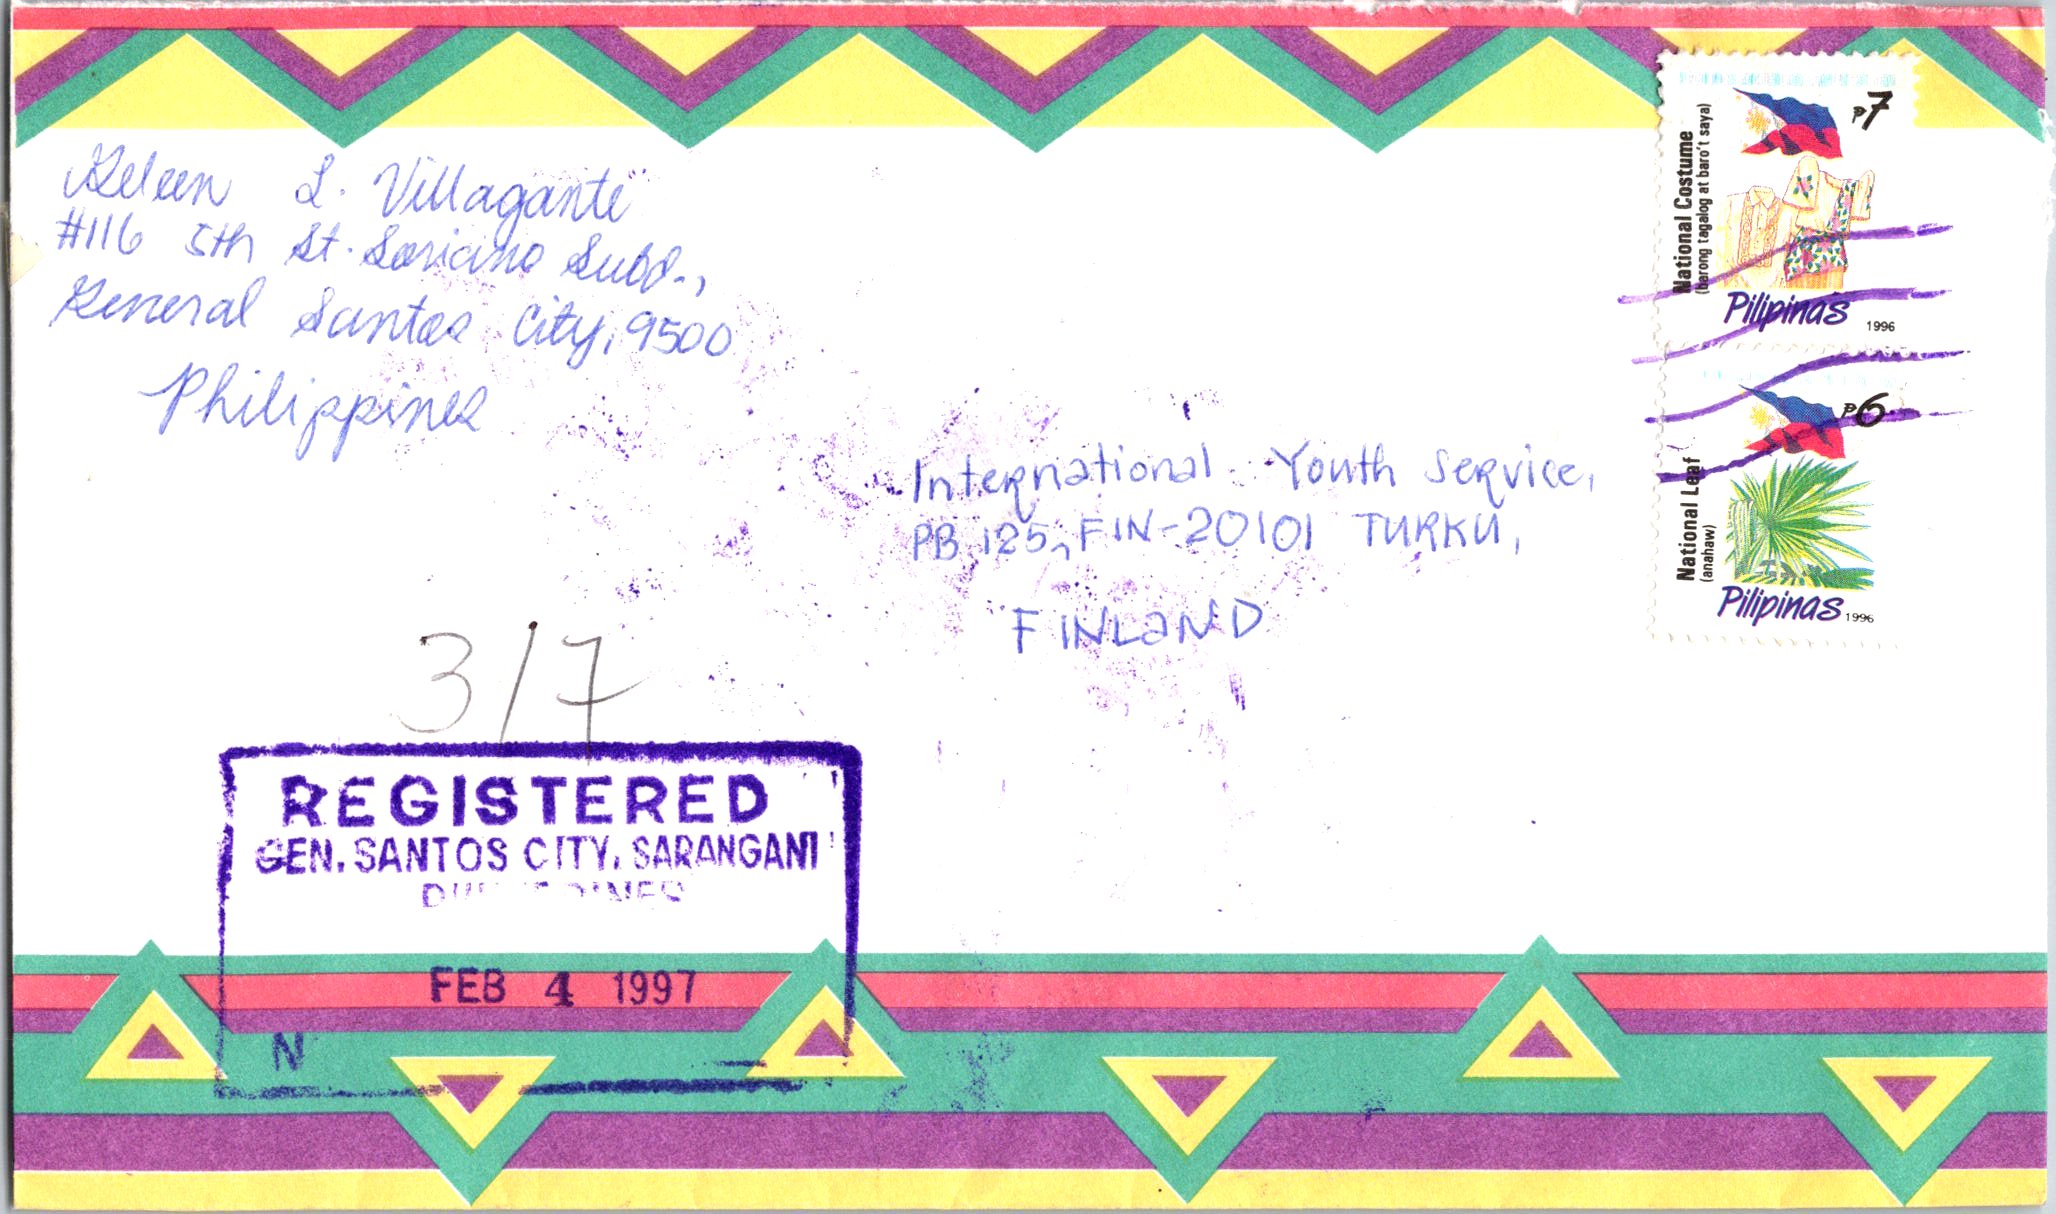 Geleen L. Villagante
#116 5th St. Soriano Subd.,
General Santos City, 9500
Philippines
International Youth Service,
PB 125, FIN-20101 TURKU,
FINLAND
National Costume
(barong tagalog at baro't saya)
₱7
Pilipinas 1996
National Leaf
(anahaw)
₱6
Pilipinas 1996
317
REGISTERED
GEN. SANTOS CITY, SARANGANI
FEB 4 1997
N